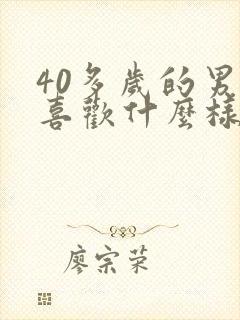 40多歲的男
喜歡什麼樣
廖宗荣